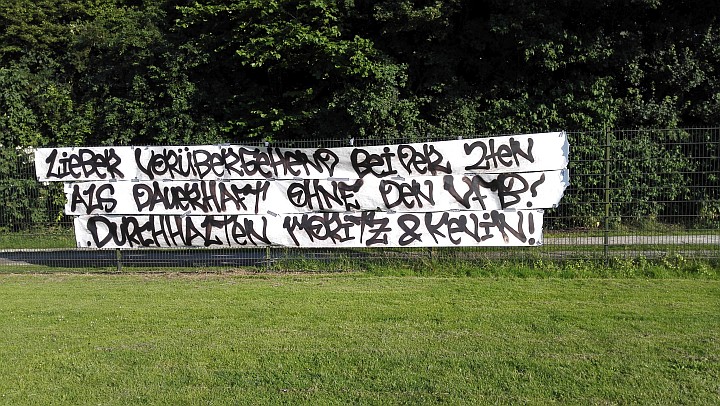 LIEBER VORÜBERGEHEND BEI DER 2TEN
ALS DAUERHAFT OHNE DEN VFB!
DURCHHALTEN MORITZ & KEVIN!